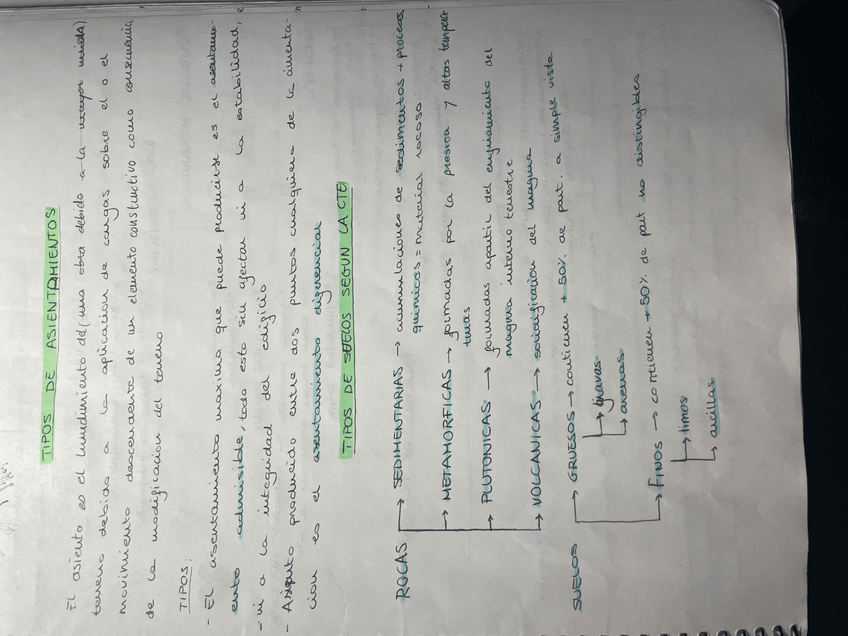 TIPOS DE ASIENTAMIENTOS
El asiento es el hundimiento de una obra debido a la
terreno debido a la aplicacion de cargas sobre el o el
movimiento descendente de un elemento constructivo como consecuencia
de la modificacion del terreno
TIPOS:
- El asentamiento maximo que puede producirse es el asentami-
ento admisible, todo esto sin afectar ni a la estabilidad,
ni a la integridad del edificio
- Asiento producido entre dos puntos cualquiera de la cimenta-
cion es el asentamiento diferencial
TIPOS DE SUELOS SEGUN LA CTE
ROCAS → SEDIMENTARIAS → acumulaciones de sedimentos + procesos
quimicos = material rocoso
→ METAMORFICAS → formadas por la presion y altas tempera
turas
→ PLUTONICAS → formadas apartir del enfriamiento del
magma interno terrestre
→ VOLCANICAS → solidificacion del magma
SUELOS → GRUESOS → contienen + 50% de part. a simple vista
→ gravas
→ arenas
→ FINOS → contienen + 50% de part no distinguibles
→ limos
→ arcillas